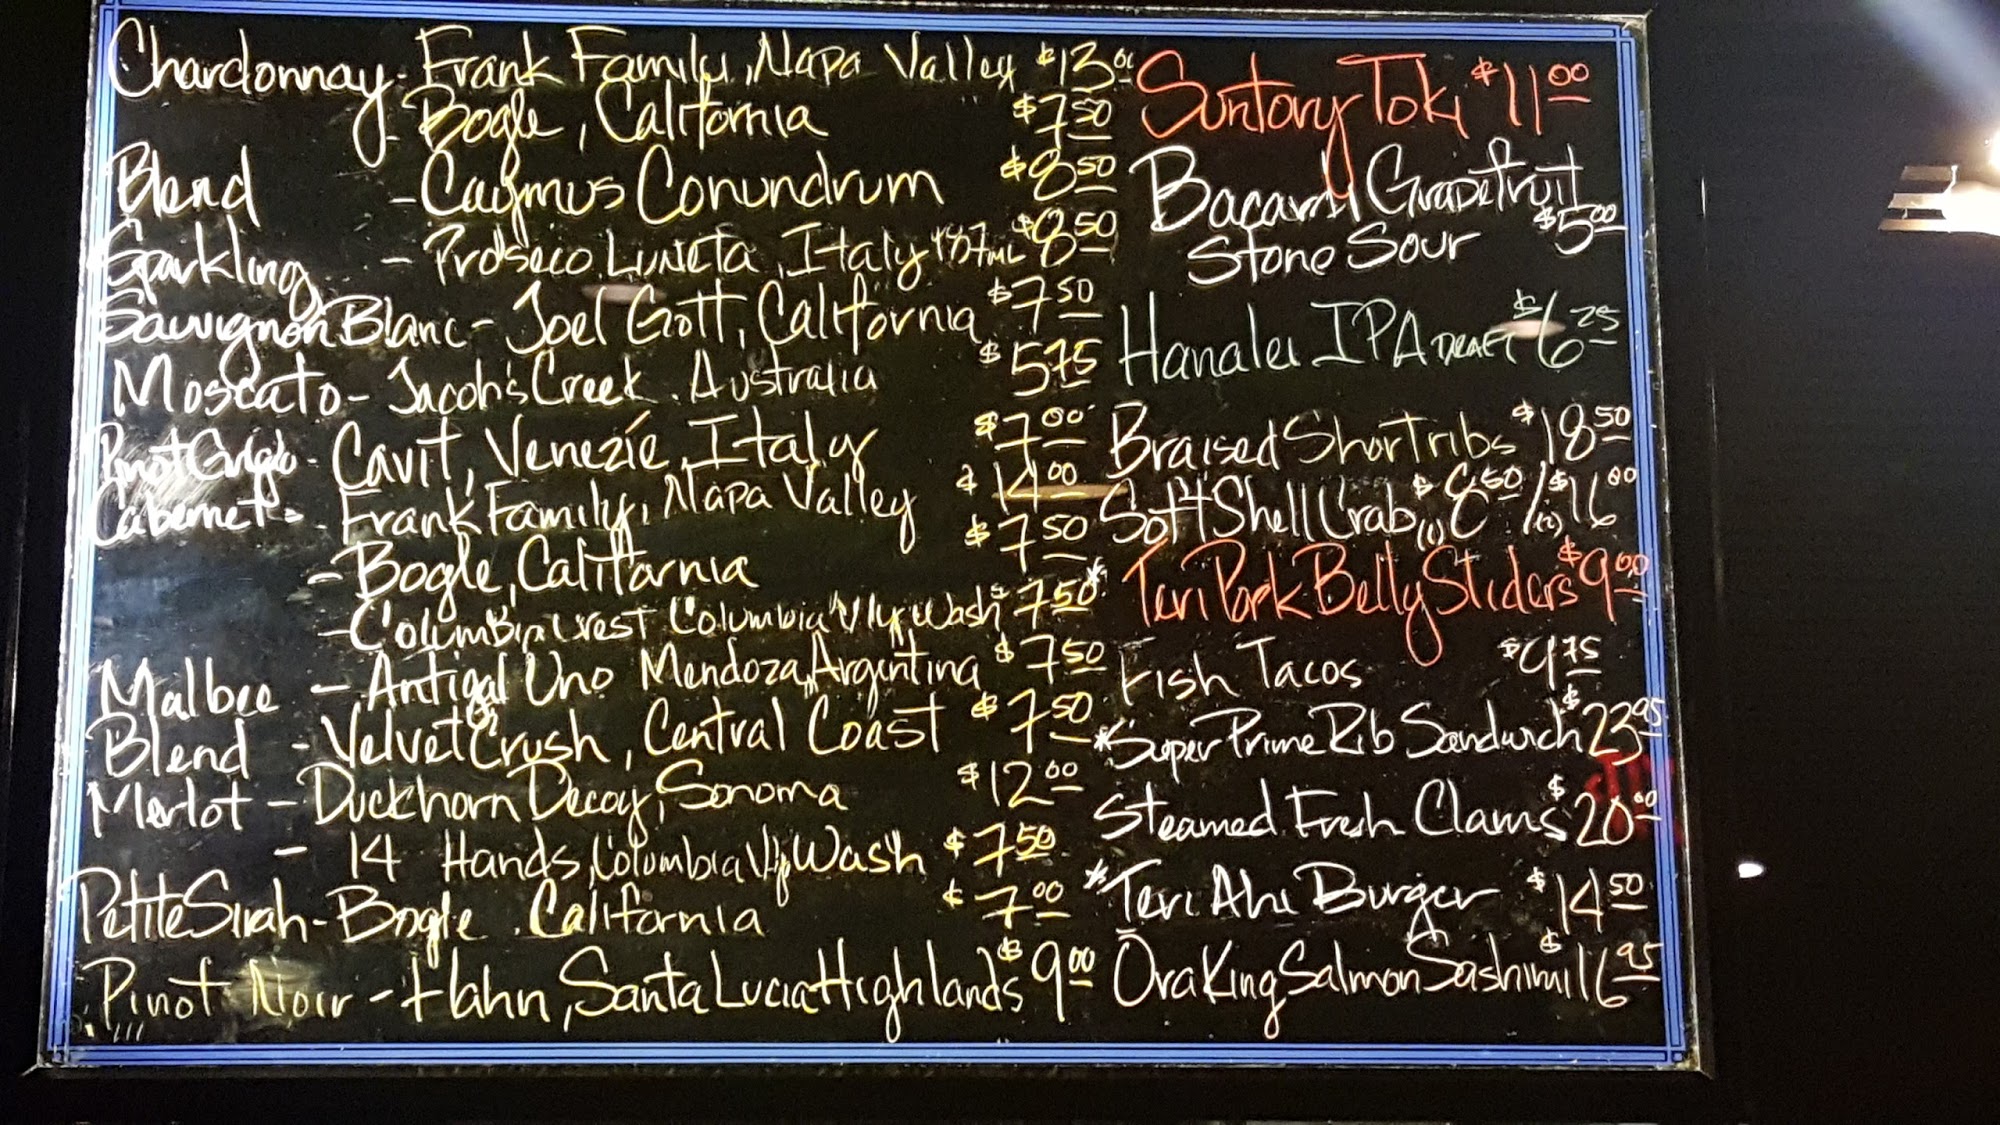 Chardonnay - Frank Family, Napa Valley $13.00
- Bogle, California $7.50
Blend - Caymus Conundrum $8.50
Sparkling - Prosecco Luneta, Italy 187ML $8.50
Sauvignon Blanc - Joel Gott, California $7.50
Moscato - Jacob's Creek, Australia $5.75
Pinot Grigio - Cavit, Venezie, Italy $7.00
Cabernet - Frank Family, Napa Valley $14.00
- Bogle, California $7.50
- Columbia Crest Columbia Vly Wash $7.50
Malbec - Antigal Uno Mendoza, Argentina $7.50
Blend - Velvet Crush, Central Coast $7.50
Merlot - Duckhorn Decoy, Sonoma $12.00
- 14 Hands, Columbia Vly Wash $7.50
Petite Sirah - Bogle, California $7.00
Pinot Noir - Hahn, Santa Lucia Highlands $9.00
Suntory Toki $11.00
Bacardi Grapefruit
Stone Sour $5.00
Hanalei IPA DRAFT $6.25
Braised Shortribs $18.50
Soft Shell Crab (1) $8.50 / (2) $16.00
* Teri Pork Belly Sliders $9.00
Fish Tacos $9.75
* Super Prime Rib Sandwich $23.95
Steamed Fresh Clams $20.00
* Teri Ahi Burger $14.50
Ōra King Salmon Sashimi $16.95